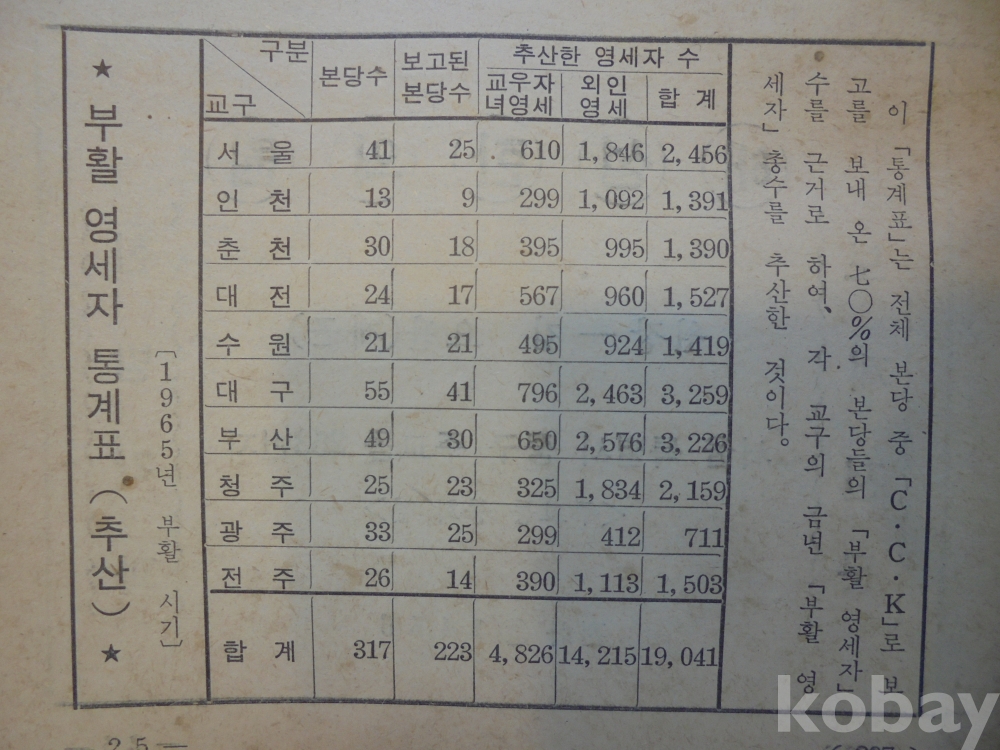 이 「통계표」는 전체 본당 중 「C·C·K」로 보
고를 보내 온 七〇%의 본당들의 「부활 영세자」
수를 근거로 하여、 각 교구의 금년 「부활 영
세자」 총수를 추산한 것이다。
구분 본당수 보고된 본당수 추산한 영세자 수
교구 교우자녀영세 외인영세 합계
서울 41 25 610 1,846 2,456
인천 13 9 299 1,092 1,391
춘천 30 18 395 995 1,390
대전 24 17 567 960 1,527
수원 21 21 495 924 1,419
대구 55 41 796 2,463 3,259
부산 49 30 650 2,576 3,226
청주 25 23 325 1,834 2,159
광주 33 25 299 412 711
전주 26 14 390 1,113 1,503
합계 317 223 4,826 14,215 19,041
〔1965년 부활 시기〕
★ 부활 영세자 통계표 (추산) ★
— 25 —
kobay